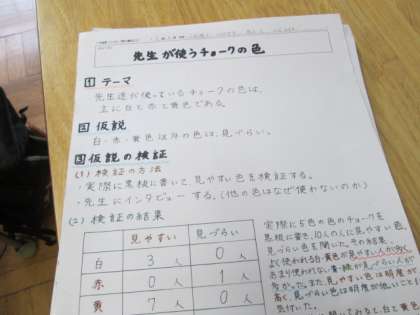 先生が使うチョークの色
1 テーマ
先生達が使っているチョークの色は、
主に白と赤と黄色である。
2 仮説
白・赤・黄色以外の色は、見づらい。
3 仮説の検証
(1) 検証の方法
・実際に黒板に書いて、見やすい色を検証する。
・先生にインタビューする。(他の色はなぜ使わないのか)
(2) 検証の結果
見やすい 見づらい
白 3人 0人
赤 0人 1人
黄 7人 0人
実際に5色の色のチョークを
黒板に書き、10人の人に見やすい色、
見づらい色を聞いた。その結果、
よく使われる白・黄色が見やすい人が多く、
あまり使われない青・緑が見づらい人が
多かった。また、見やすい色は明度が
高く、見づらい色は明度が低いこと
気付いた。